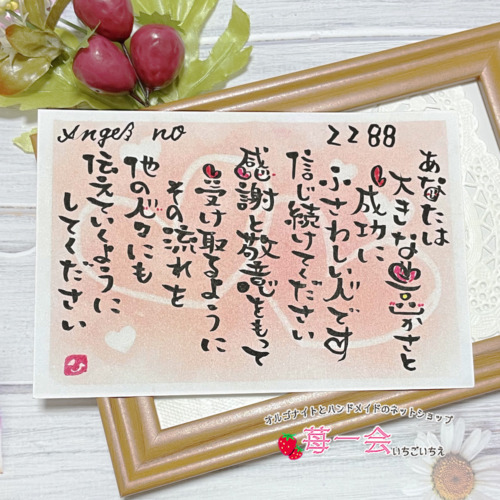 Angel's no 2288
あなたは
大きな豊かさと
成功に
ふさわしい人です
信じ続けてください
感謝と敬意をもって
受け取るように
その流れを
他の人々にも
伝えていくように
してください
オルゴナイトとハンドメイドのネットショップ
苺一会 いちごいちえ